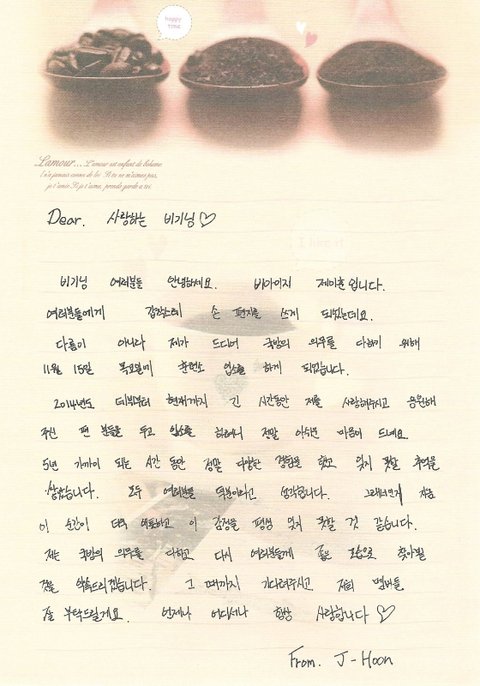 happy time
L'amour... L'amour est enfant de bohème
Il n'a jamais connu de loi Si tu ne m'aimes pas,
je t'aime Si je t'aime, prends garde à toi
Dear. 사랑하는 비기닝♡
비기닝 여러분들 안녕하세요. 비아이지 제이훈입니다.
여러분들에게 갑작스레 손 편지를 쓰게 되었는데요.
다름이 아니라 제가 드디어 국방의 의무를 다하기 위해
11월 15일 목요일에 훈련소 입소를 하게 되었습니다.
2014년도 데뷔부터 현재까지 긴 시간동안 저를 사랑해주시고 응원해
주신 팬 분들을 두고 입소를 하려니 정말 아쉬운 마음이 드네요.
5년 가까이 되는 시간 동안 정말 다양한 경험을 했고 잊지 못할 추억을
쌓았습니다. 모두 여러분들 덕분이라고 생각합니다. 그래서인지 지금
이 순간이 더욱 애틋하고 이 감정을 평생 잊지 못할 것 같습니다.
저는 국방의 의무를 다하고 다시 여러분들께 좋은 모습으로 찾아뵐
것을 약속드리겠습니다. 그 때까지 기다려주시고 저희 멤버들
잘 부탁드릴게요. 언제나 어디서나 항상 사랑합니다♡
From. J-Hoon